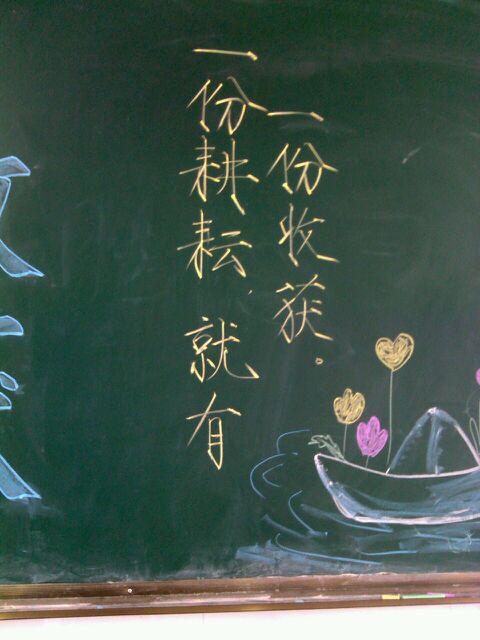 一份耕耘,就有
一份收获。